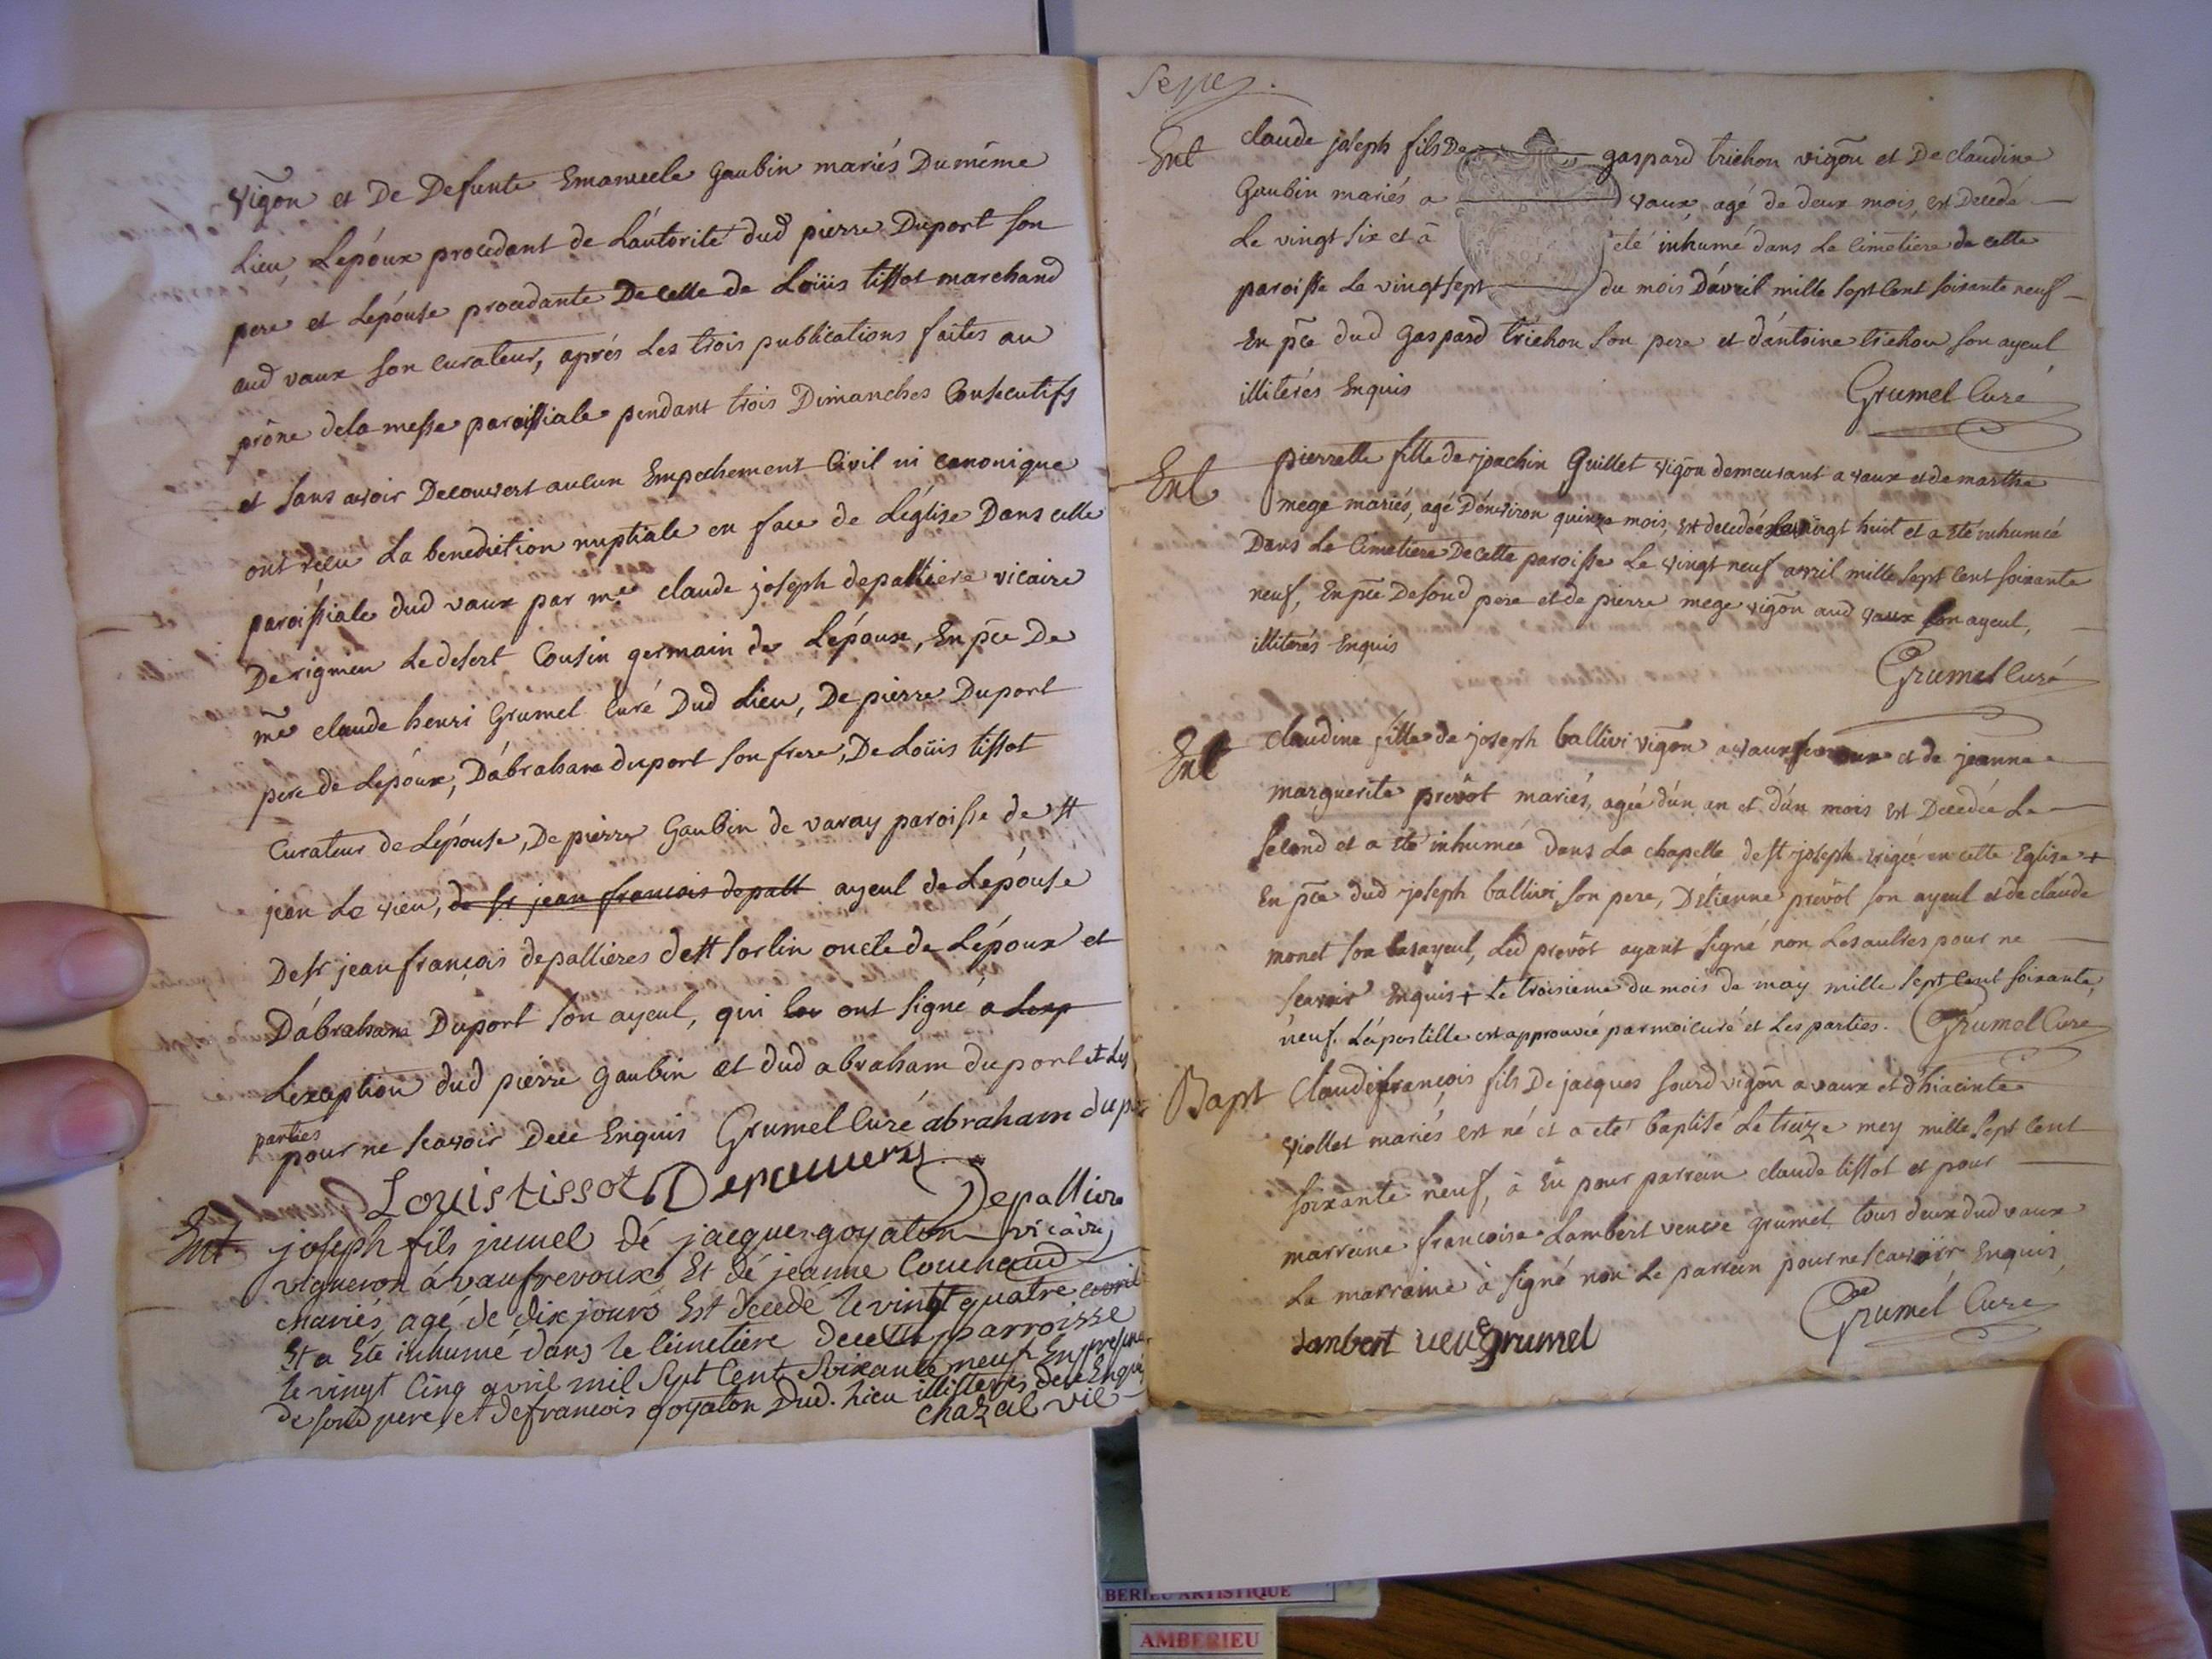 vigõn et De Defunte Emanuele Gaubin mariés Du même
Lieu, Lépoux procedant de Láutorité dud pierre Duport son
pere et Lépouse procedante De celle de Loüis tissot marchand
aud vaux son curateur, aprés Les trois publications faites au
prône dela messe paroissiale pendant trois Dimanches Consecutifs
et sans avoir Decouvert aucun Empechement Civil ni canonique
ont reçu La benediction nuptiale en face de Léglise Dans celle
paroissiale dud vaux par mre claude joseph depalliere vicaire
De rignieu Ledesert Cousin germain de Lépoux, En pce De
mre claude henri Grumel Curé Dud Lieu, De pierre Duport
pere de Lépoux, Dábraham duport son frere, De Loüis tissot
Curateur de Lépouse, De pierre Gaubin de varay paroisse de st
jean Le vieu, de sr jean francois depall ayeul de Lépouse
De sr jean françois depallieres de st Sorlin oncle de Lépoux et
Dábraham Duport son ayeul, qui ont signé a
Lexception dud pierre Gaubin et dud abraham duport et Les
parties
pour ne scavoir Dece Enquis Grumel Curé abraham dupor
Louis tissot
Depalliere
vicaire
Ent joseph fils jumel dé jacque goyaton
vigneron á vaufrevoux Et dé jeanne Couchaud
mariés, agé de dix jours Est decedé le vingt quatre avril
Et a Eté inhumé dans le cimetiere decette parroisse
le vingt Cinq avril mil Sept Cent Soixante neuf En presence
de sond pere et de francois goyaton Dud. lieu illitterés dece Enquis
chazal vic
Sept
Ent claude joseph fils De gaspard trichon vigõn et De claudine
Gaubin mariés a vaux agé de deux mois est Decedé
Le vingt six et â eté inhumé dans Le cimetiere de cette
paroisse Le vingt sept du mois Dávril mille sept Cent soixante neuf
En pce dud gaspard trichon son pere et dántoine trichon son ayeul
illiterés Enquis
Grumel Curé
Ent pierrette fille de joachin Guillet vigõn demeurant a vaux et de marthe
mege mariés, agé Dénviron quinze mois, est decedée Le vingt huit et a eté inhumée
Dans Le Cimetiere De cette paroisse Le vingt neuf avril mille sept Cent soixante
neuf, En pce De sond pere et de pierre mege vigõn aud vaux son ayeul,
illiterés Enquis
Grumel Curé
Ent claudine fille de joseph ballivi vigõn a vaux et de jeanne
marguerite prevôt mariés, agée dún an et dún mois est Decedée Le
second et a eté inhumée dans La chapelle de st joseph erigée en cette Eglise +
En pce dud joseph ballivi son pere, Détienne prevôt son ayeul et de claude
monet son bisayeul, Led prevôt ayant signé non Les autres pour ne
scavoir Enquis + Le troisieme du mois de may mille sept Cent soixante
neuf. Lápostille est approuvée par moi curé et Les parties. Grumel Curé
Bapt Claude françois fils De jacques sourd vigõn a vaux et d'hiacinte
viollet mariés est né et a eté baptisé Le treize mey mille sept Cent
soixante neuf, à Eu pour parrain claude tissot et pour
marraine françoise Lambert veuve grumel, tous deux dud vaux
La marraine à signé non Le parrain pour ne scavoir Enquis
Grumel Curé
Lambert veuve grumel
BERIEU ARTISTIQUE
AMBERIEU